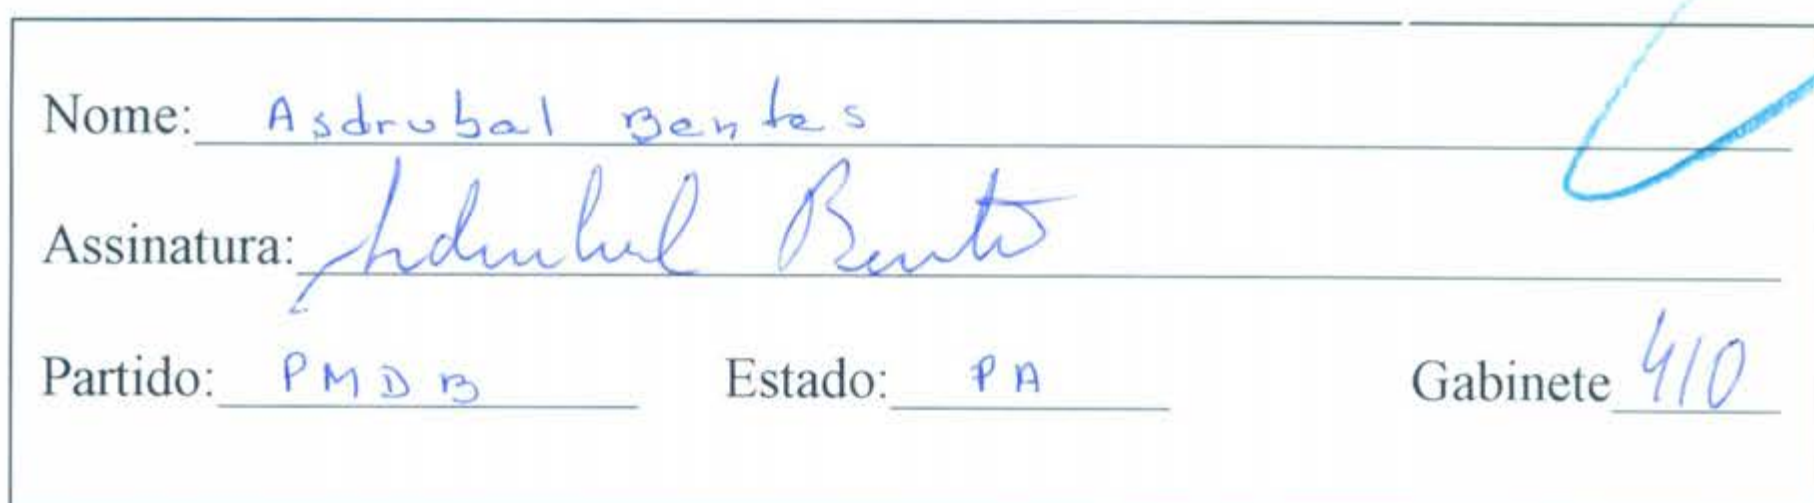 Nome: Asdrubal Bentes
Assinatura: Asdrubal Bentes
Partido: PMDB Estado: PA Gabinete 410